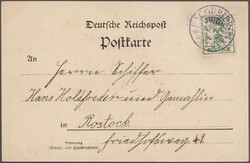 Deutsche Reichspost
Postkarte
An
Herrn Schiffer
Hans Holzfreder und Gemahlin
in Rostock
Friedhofsweg 49.
Wohnung
(Straße und Hausnummer)